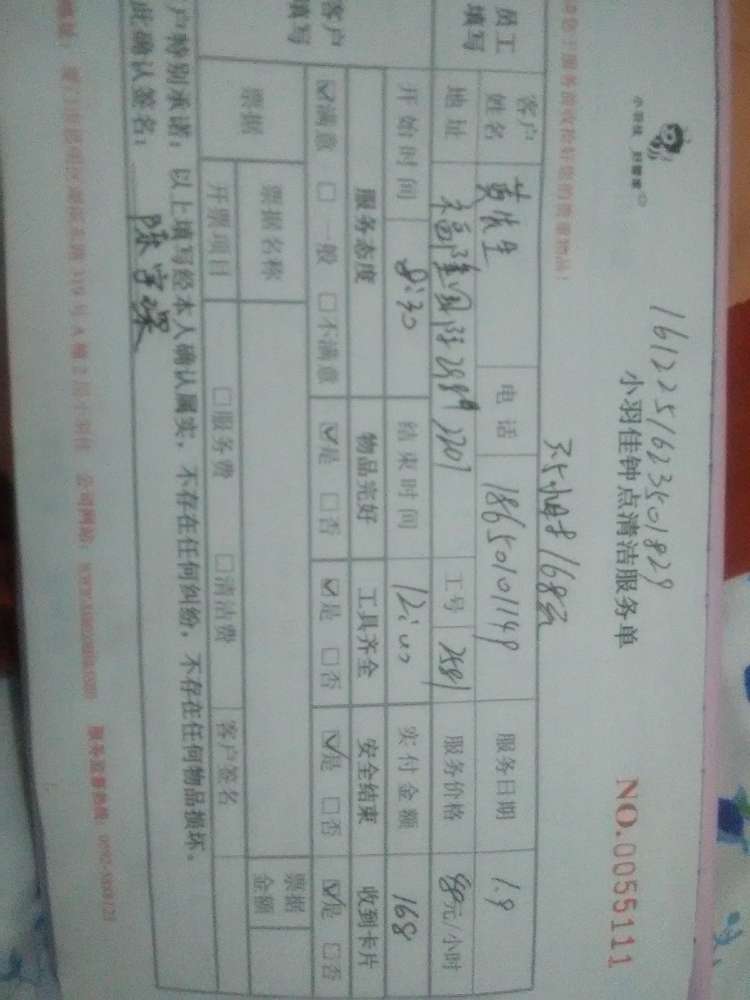 小羽佳 好管家
1612251623501829
小羽佳钟点清洁服务单
NO.0055111
请您于服务前收拾好您的贵重物品!
3.5小时168元
员工填写
客户姓名 黄先生 电话 18650101149 服务日期 1.9
地址 2201 工号 2581 服务价格 元/小时
开始时间 8:30 结束时间 12:00 实付金额 168
客户填写
服务态度 物品完好 工具齐全 安全结束 收到卡片
☑满意 □一般 □不满意 ☑是 □否 ☑是 □否 ☑是 □否 ☑是 □否
票据 票据名称 票据金额
开票项目 □服务费 □清洁费 客户签名
户特别承诺:以上填写经本人确认属实,不存在任何纠纷,不存在任何物品损坏。
此确认签名:
号A幢2层小羽佳 公司网站:
服务监督热线: